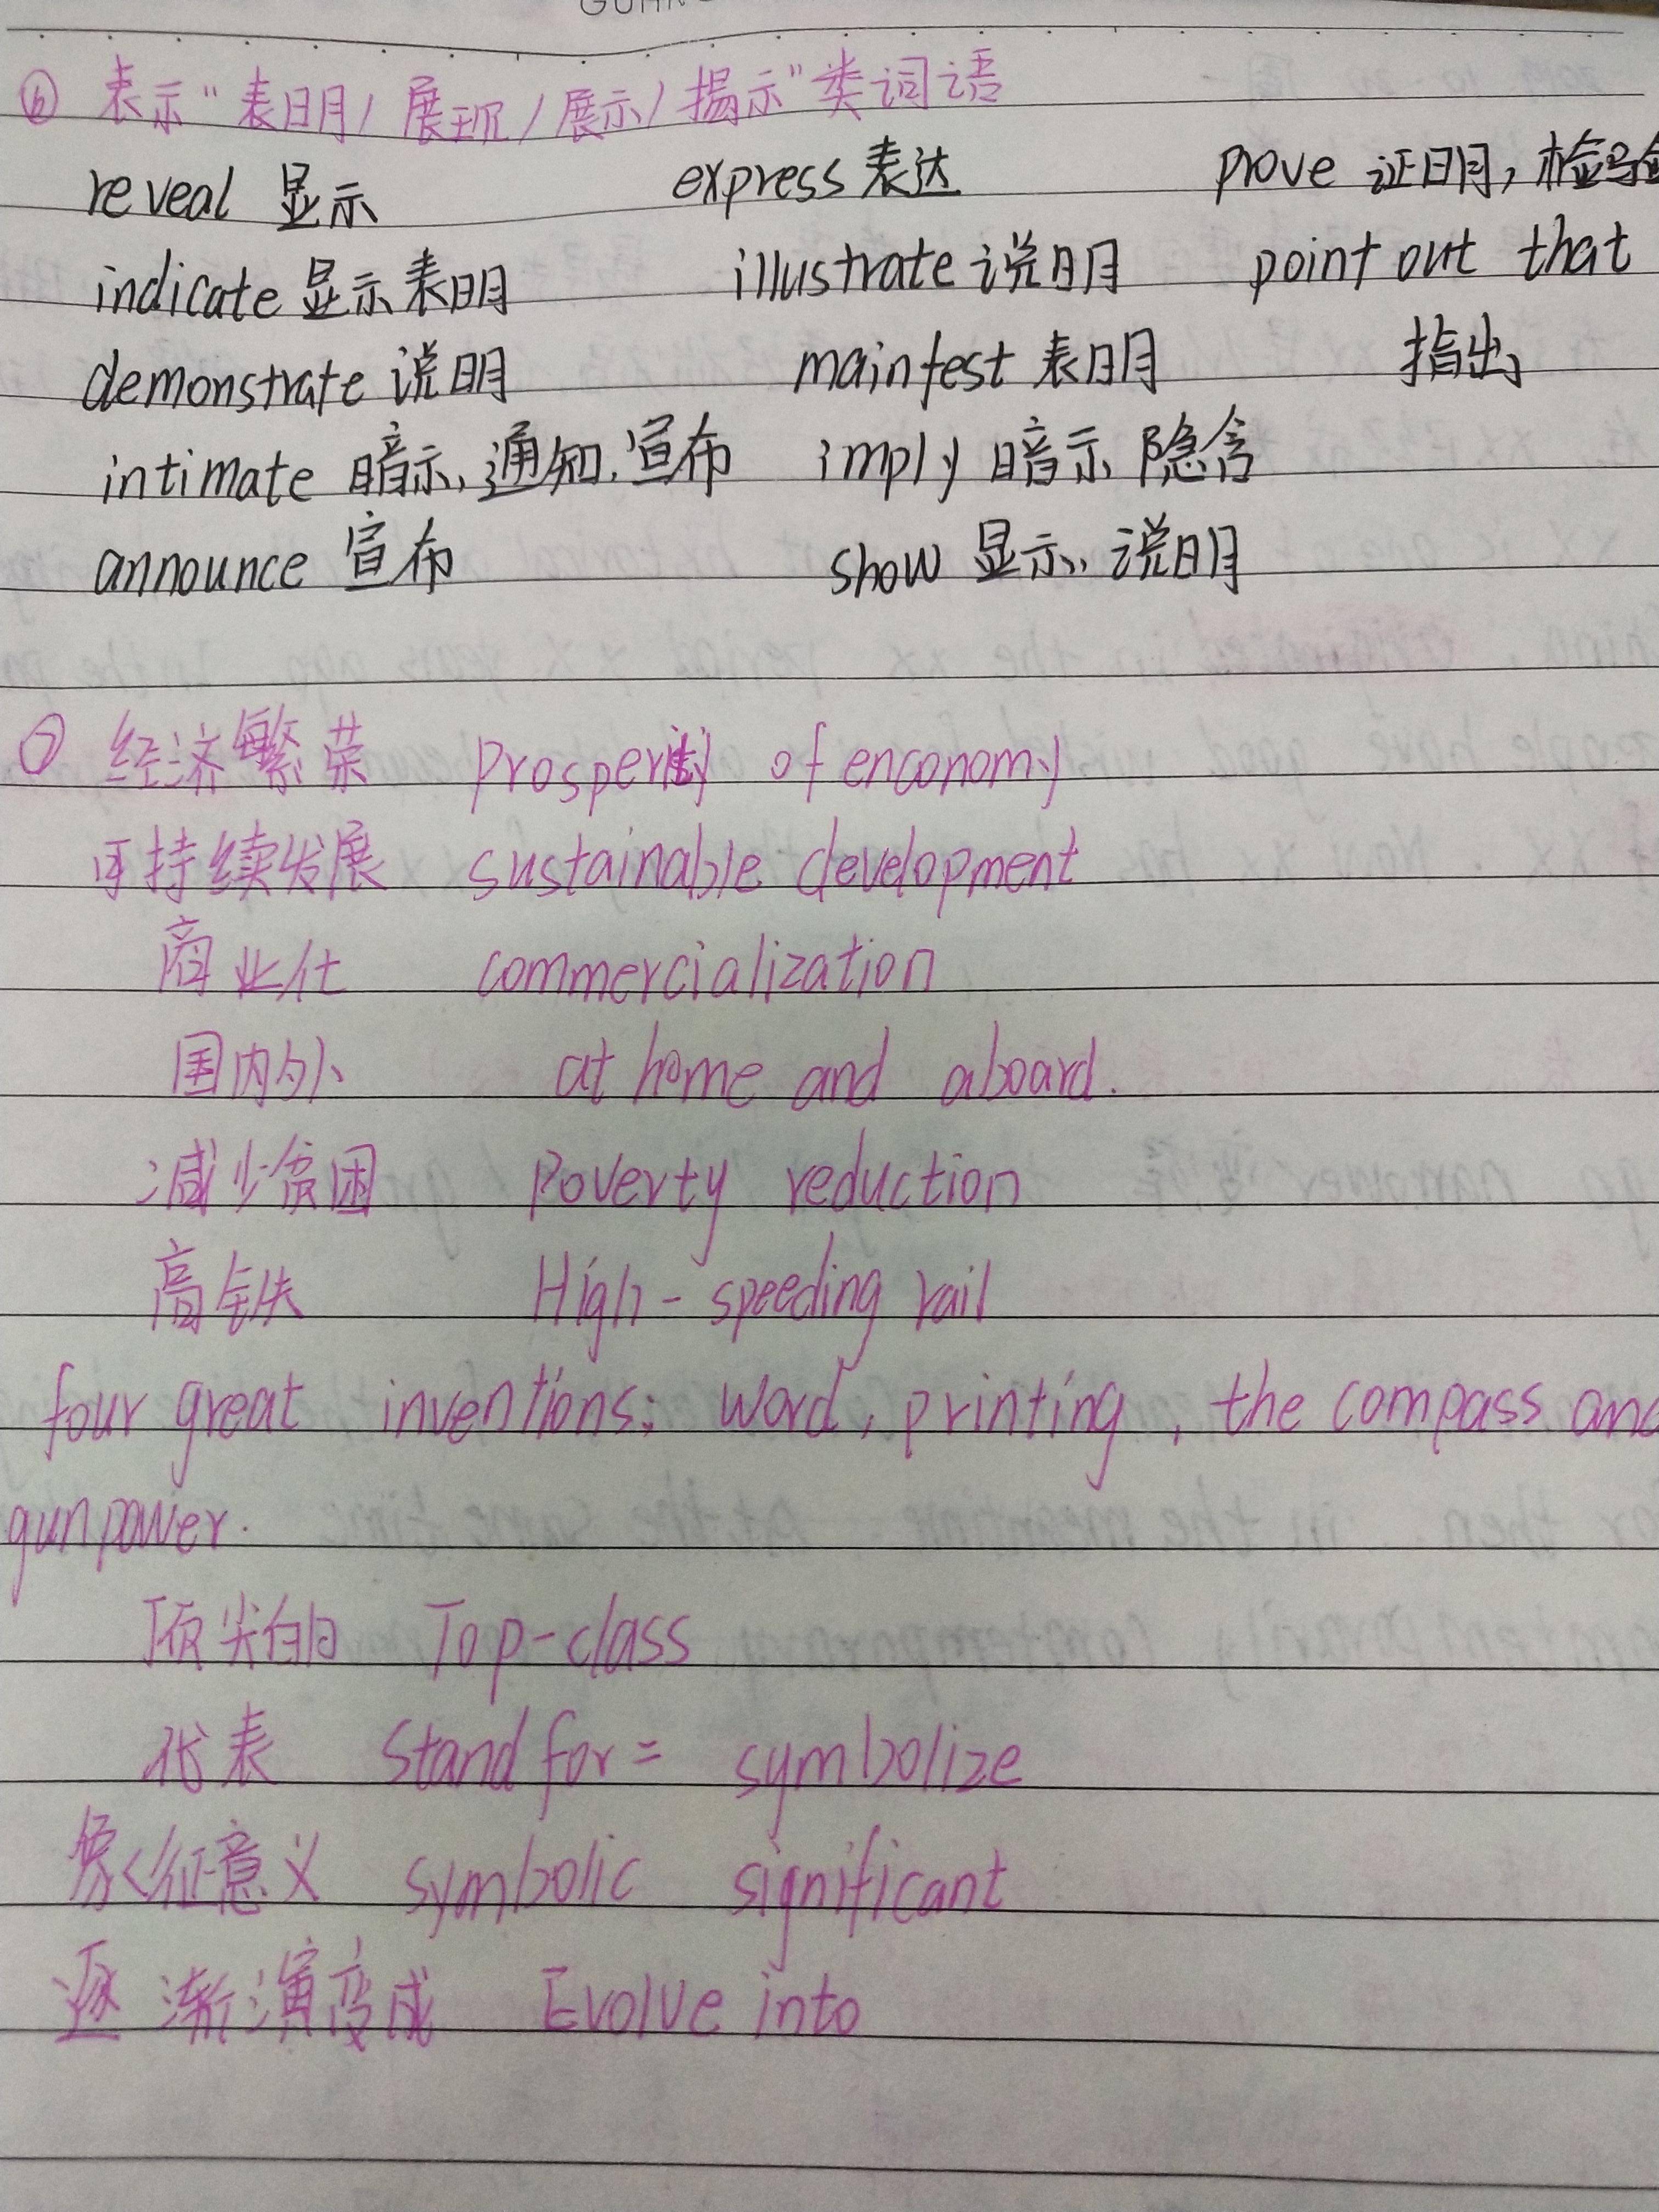 ⑥ 表示"表明/展现/展示/揭示"类词语
reveal 显示 express 表达 prove 证明,检验
indicate 显示表明 illustrate 说明 point out that
demonstrate 说明 mainfest 表明 指出
intimate 暗示,通知,宣布 imply 暗示 隐含
announce 宣布 show 显示,说明
⑦ 经济繁荣 prosperity of enconomy
可持续发展 sustainable development
商业化 commercialization
国内外 at home and aboard.
减少贫困 Poverty reduction
高铁 High-speeding rail
four great inventions: word, printing, the compass and
gunpower.
顶尖的 Top-class
代表 Stand for = symbolize
象征意义 symbolic significant
逐渐演变成 Evolve into